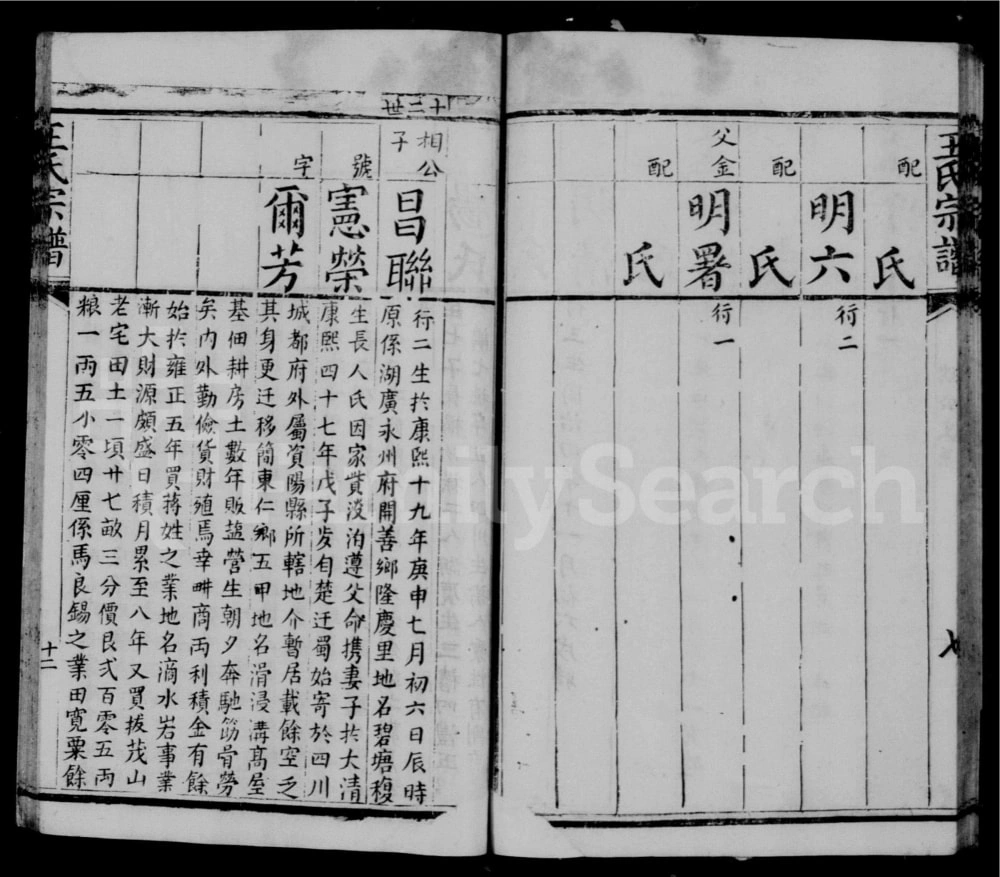 王氏宗譜
配
氏
明六
行二
配
氏
父金
明署
行一
配
氏
十二世
相公
子
昌聯
號
憲榮
字
爾芳
行二生於康熙十九年庚申七月初六日辰時
原係湖廣永州府開善鄉隆慶里地名碧塘
生長人氏因家貲淡泊遵父命携妻子於大清
康熙四十七年戊子岁自楚迁蜀始寄於四川
城都府外屬資陽縣所轄地介暫居載餘空乏
其身更迁移簡東仁鄉五甲地名滑浸溝髙屋
基佃耕房土數年販盐營生朝夕奔馳筋骨勞
矣内外勤儉貨財殖焉幸畊商両利積金有餘
始於雍正五年買蒋姓之業地名滴水岩事業
漸大財源頗盛日積月累至八年又買拔茂山
老宅田土一頃廿七畝三分價艮弍百零五両
粮一両五小零四厘係馬良錫之業田寛粟餘
王氏宗譜
十二
FamilySearch